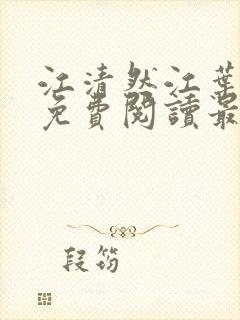 江清然江葉
免費閱讀最
段筠